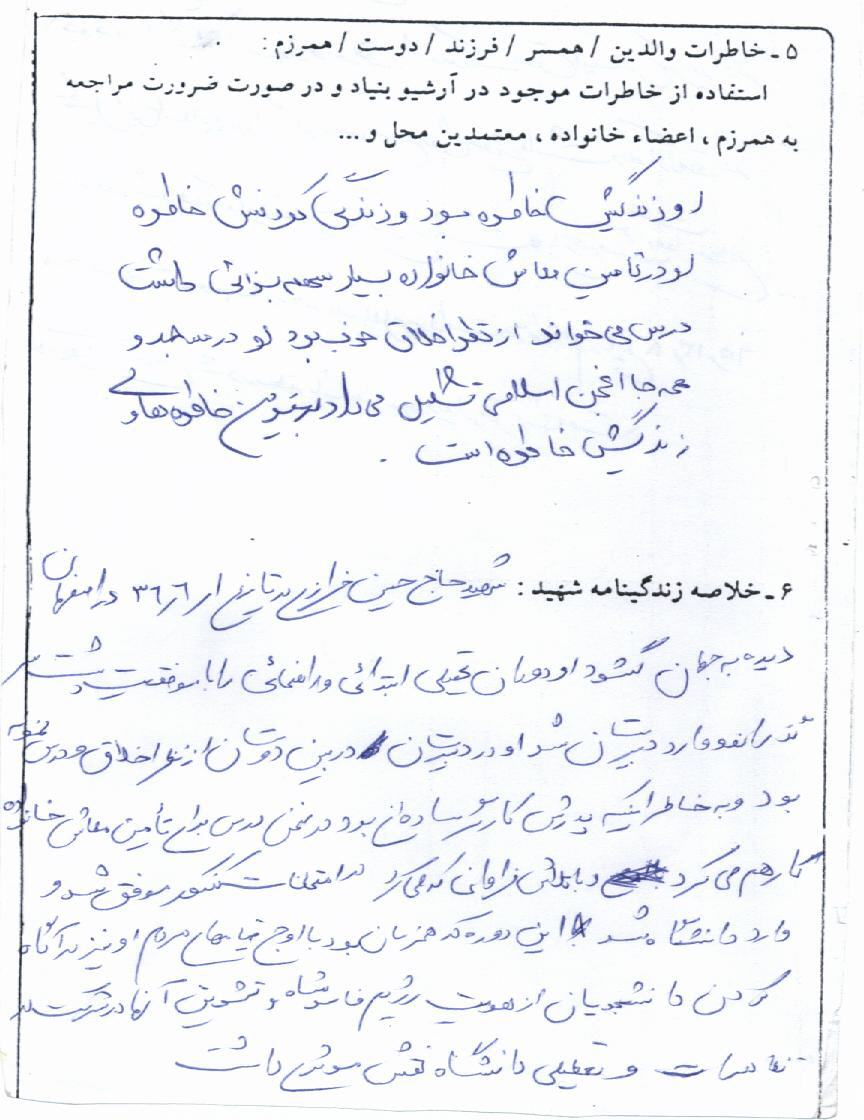 ۵ ـ خاطرات والدین / همسر / فرزند / دوست / همرزم :
استفاده از خاطرات موجود در آرشیو بنیاد و در صورت ضرورت مراجعه
به همرزم ، اعضاء خانواده ، معتمدین محل و ...
او زندگیش خاطره بود و زندگی کردنش خاطره
او در تامین معاش خانواده بسیار سهم بزائی داشت
درس می خواند از نظر اخلاق خوب بود او در مسجد و
همه جا انجمن اسلامی تشکیل می داد بهترین خاطره های
زندگیش خاطره است .
۶ ـ خلاصه زندگینامه شهید : شهید حاج حسین خرازی در تاریخ ۳۶/۶/۱ در اصفهان
دیده به جهان گشود او دوران تحصیلی ابتدائی و راهنمائی را با موفقیت پشت سر
گذراند و وارد دبیرستان شد او در دبیرستان در بین دوستان از نظر اخلاق و درس نمونه
بود و به خاطر اینکه پدرش کارگر ساده ای بود در ضمن درس برای تأمین معاش خانواده
کار هم می کرد و با تلاش فراوانی که می کرد در امتحانات کنکور موفق شد و
وارد دانشگاه شد این دوره که همزمان بود با اوج قیامهای مردم او نیز در آگاه
کردن دانشجویان از هویت رژیم شاه و تشویق آنها در شرکت در
تظاهرات و تعطیلی دانشگاه نقش موثری داشت